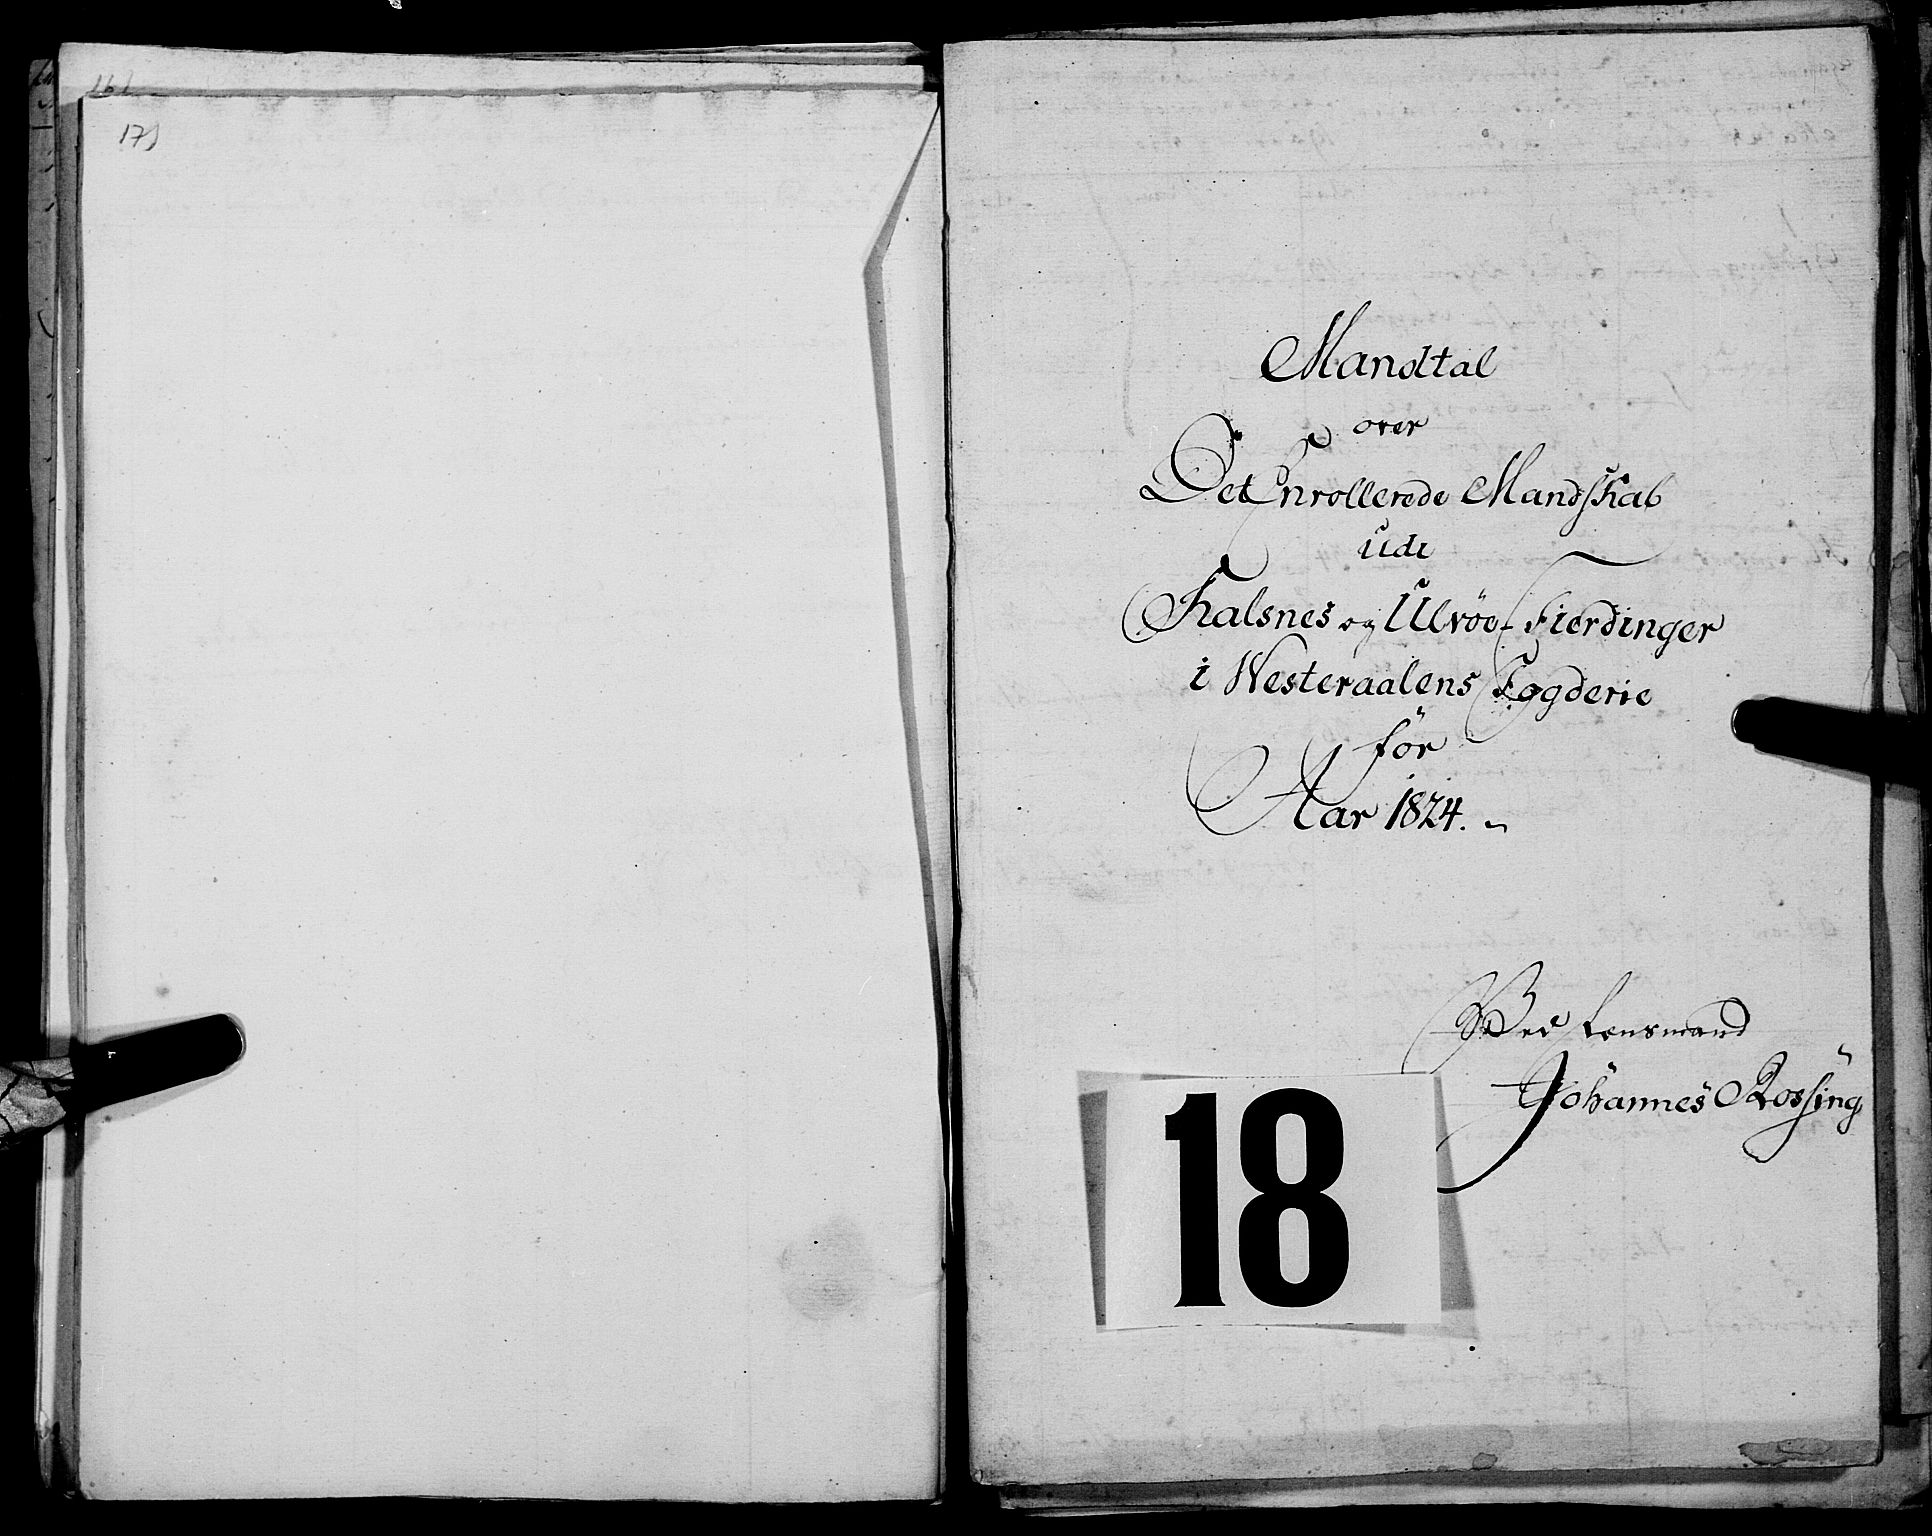 161
171
Mandtal
over
Det Enrollerede Mandskab
udi
Kalsnes og Ulvöe Fierdinger
i Westeraalens Fogderie
för
Aar 1824.
Ved Lensmand
Johannes Rossing
18